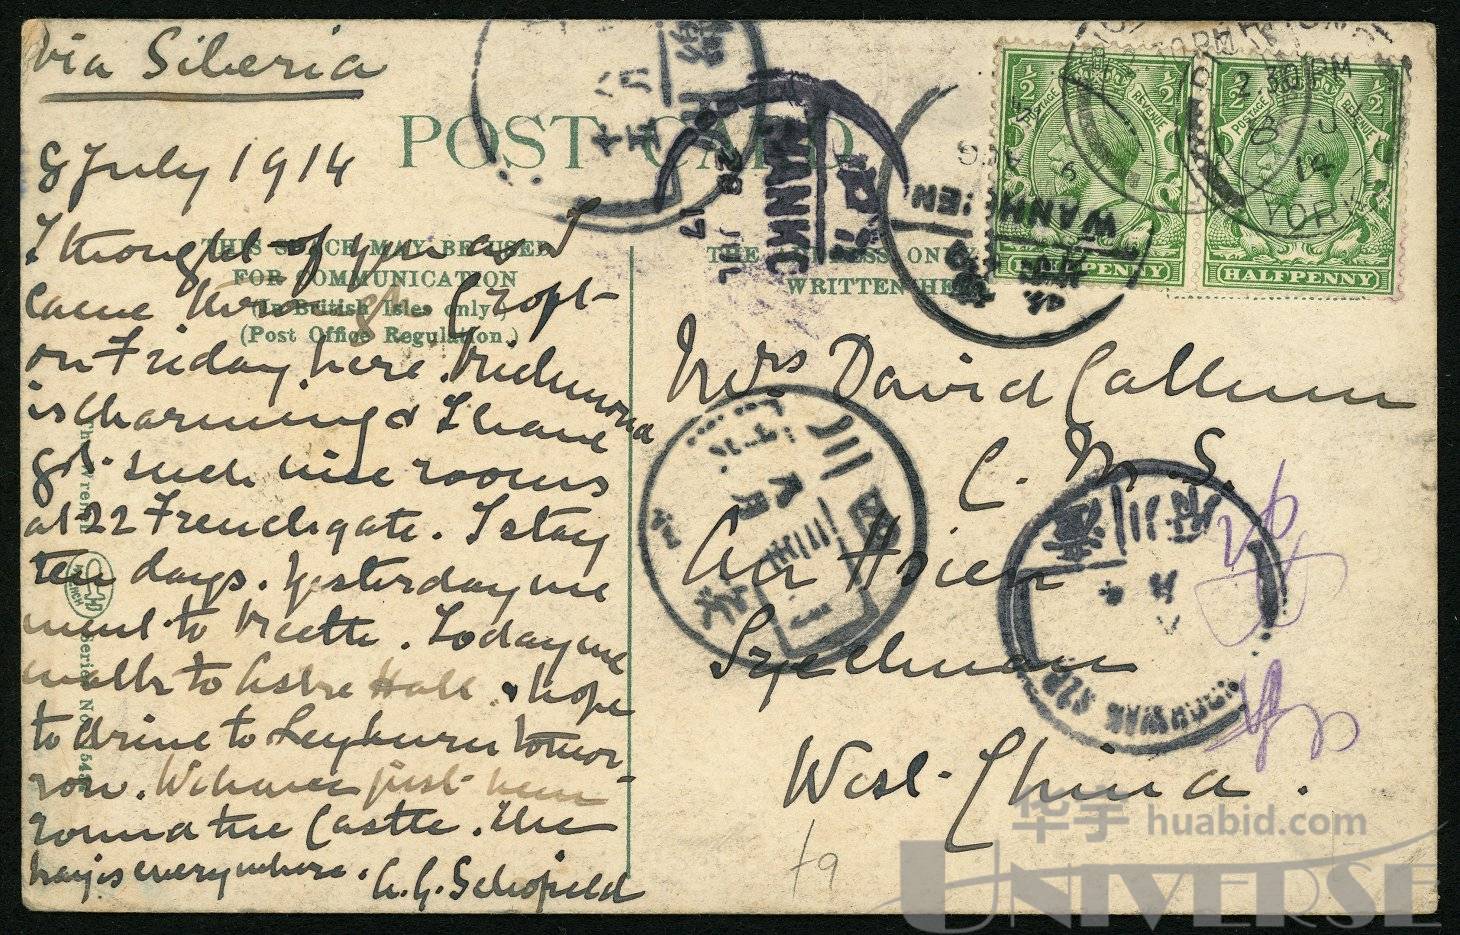 via Siberia
POST CARD
8 July 1914
THIS SPACE MAY BE USED
FOR COMMUNICATION
(In British Isles only.)
(Post Office Regulation.)
THE ADDRESS ONLY
WRITTEN HE
I thought of you as I
came through Croft
on Friday here. Richmond
is charming & I have
got such nice rooms
at 22 Frenchgate. I stay
ten days. Yesterday we
went to Reeth. Today we
walk to Aske Hall & hope
to drive to Leyburn tomor-
row. We have just been
round the Castle. The
hay is everywhere. A. G. Schofield
Mrs David Callum
C. M. S.
An Hsien
Szechuan
West China.
HALFPENNY
HALFPENNY
POSTAGE
REVENUE
½
½
2.30 PM
8 J
14
YORK
HANKO
28
17
WANH
HSIEN
四川
79
华宇 huabid.com
UNIVERSE